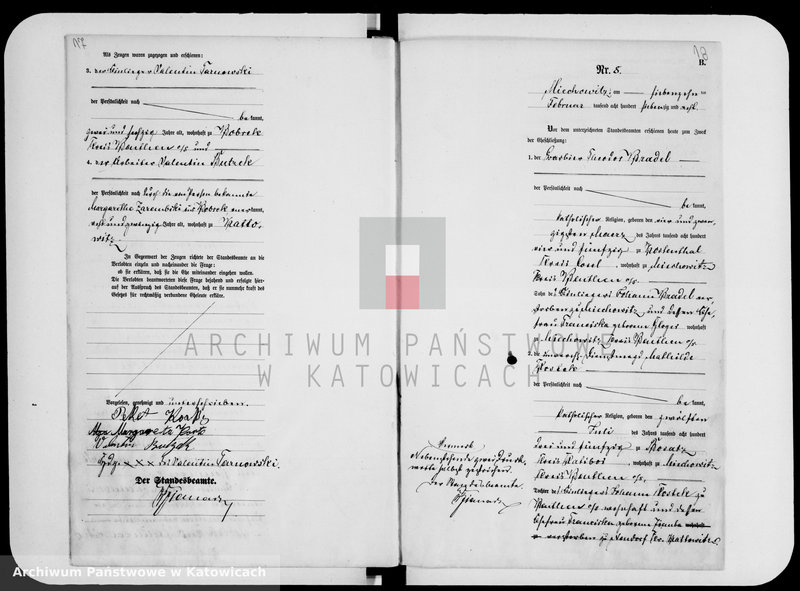 Als Zeugen waren zugezogen und erschienen:
3. der Einlieger Valentin Tarnowski
der Persönlichkeit nach
be kannt,
zwei und fünfzig Jahre alt, wohnhaft zu Bobrek
Kreis Beuthen o/s und
4. der Arbeiter Valentin Butzek
der Persönlichkeit nach durch die von Person bekannte
Margarethe Zarembski aus Bobrek anerkannt,
acht und zwanzig Jahre alt, wohnhaft zu Katto-
witz
In Gegenwart der Zeugen richtete der Standesbeamte an die
Verlobten einzeln und nacheinander die Frage:
ob sie erklären, daß sie die Ehe miteinander eingehen wollen.
Die Verlobten beantworteten diese Frage bejahend und erfolgte hier-
auf der Ausspruch des Standesbeamten, daß er sie nunmehr kraft des
Gesetzes für rechtmäßig verbundene Eheleute erkläre.
Vorgelesen, genehmigt und unterschrieben.
Margareta
Butzek
xxx Valentin Tarnowski.
Der Standesbeamte.
B.
Nr. 5.
Miechowitz, am siebenzehn ten
Februar tausend acht hundert siebenzig und acht.
Vor dem unterzeichneten Standesbeamten erschienen heute zum Zweck
der Eheschließung:
1. der Theodor Bradel
der Persönlichkeit nach
be kannt,
katholischer Religion, geboren den vier und zwan-
zigsten Maerz des Jahres tausend acht hundert
vier und fünfzig zu Kostenthal
Kreis Cosel, wohnhaft zu Miechowitz
Kreis Beuthen o/s
Sohn des Einliegers Johann Bradel ver-
storben zu Miechowitz und dessen Ehe-
frau Franciska geborene Kloger wohnhaft
zu Miechowitz Kreis Beuthen o/s
2. die Dienstmagd Mathilde
Kostek
der Persönlichkeit nach
be kannt,
katholischer Religion, geboren den zwölften
Juli des Jahres tausend acht hundert
drei und fünfzig zu
Kreis Ratibor, wohnhaft zu Miechowitz
Kreis Beuthen o/s.
Tochter des Einliegers Johann Kostek zu
Beuthen o/s wohnhaft und dessen
Ehefrau Franciska geborene
verstorben zu Kr. Kattowitz
Nebenstehende zwei Druck-
worte
Der Standesbeamte.
ARCHIWUM PAŃSTWOWE
W KATOWICACH
Archiwum Państwowe w Katowicach